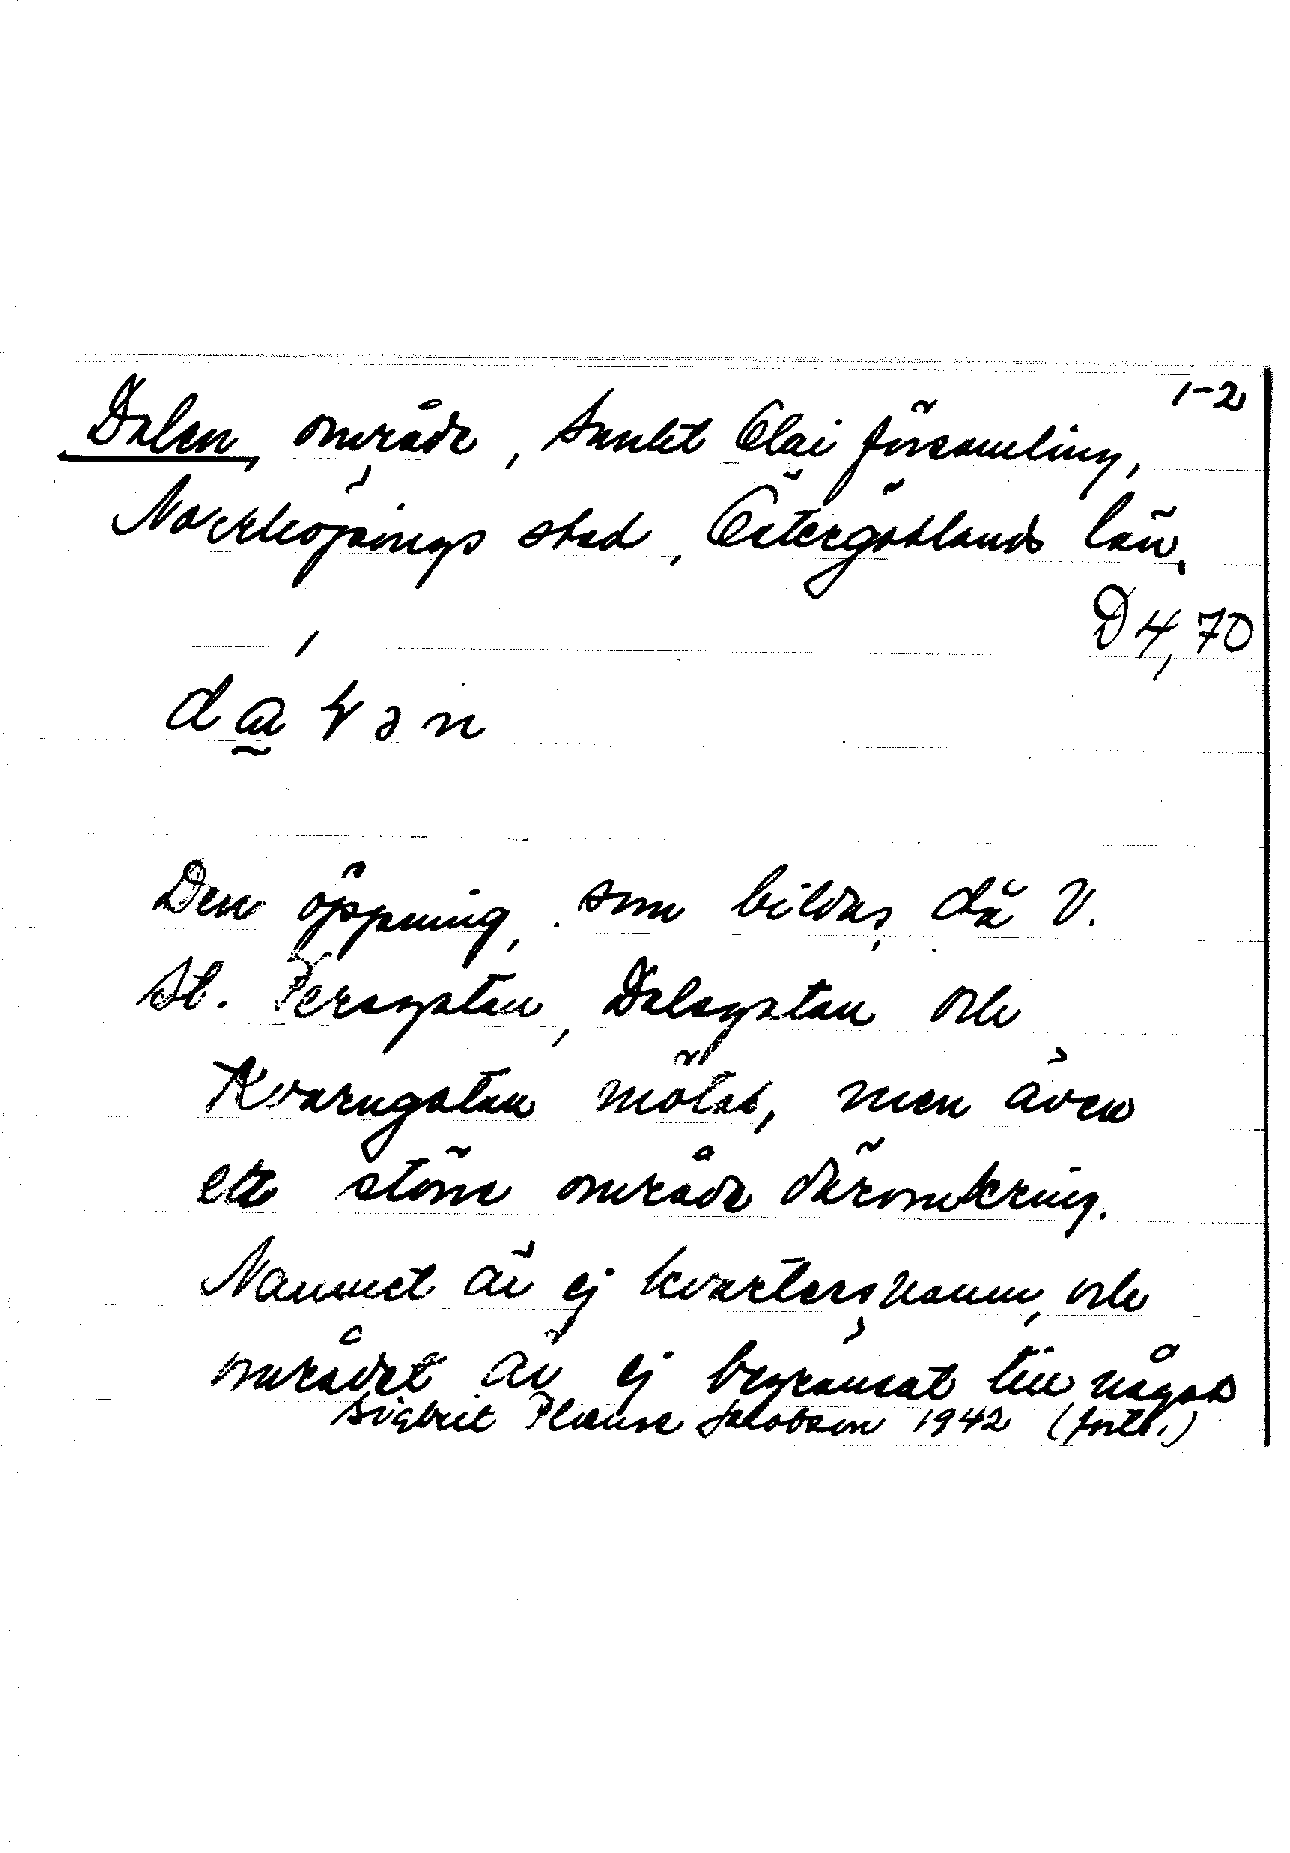 1-2
Dalen, område, Sankt Olai församling,
Norrköpings stad, Östergötlands län.
D4,70
Den öppning, som bildas, då V.
St. Persgatan, Dalsgatan och
Kvarngatan mötas, men även
ett större område däromkring.
Namnet är ej kvartersnamn, och
området är ej begränsat till något
Sigbrit Plænge Jacobson 1942 (forts.)